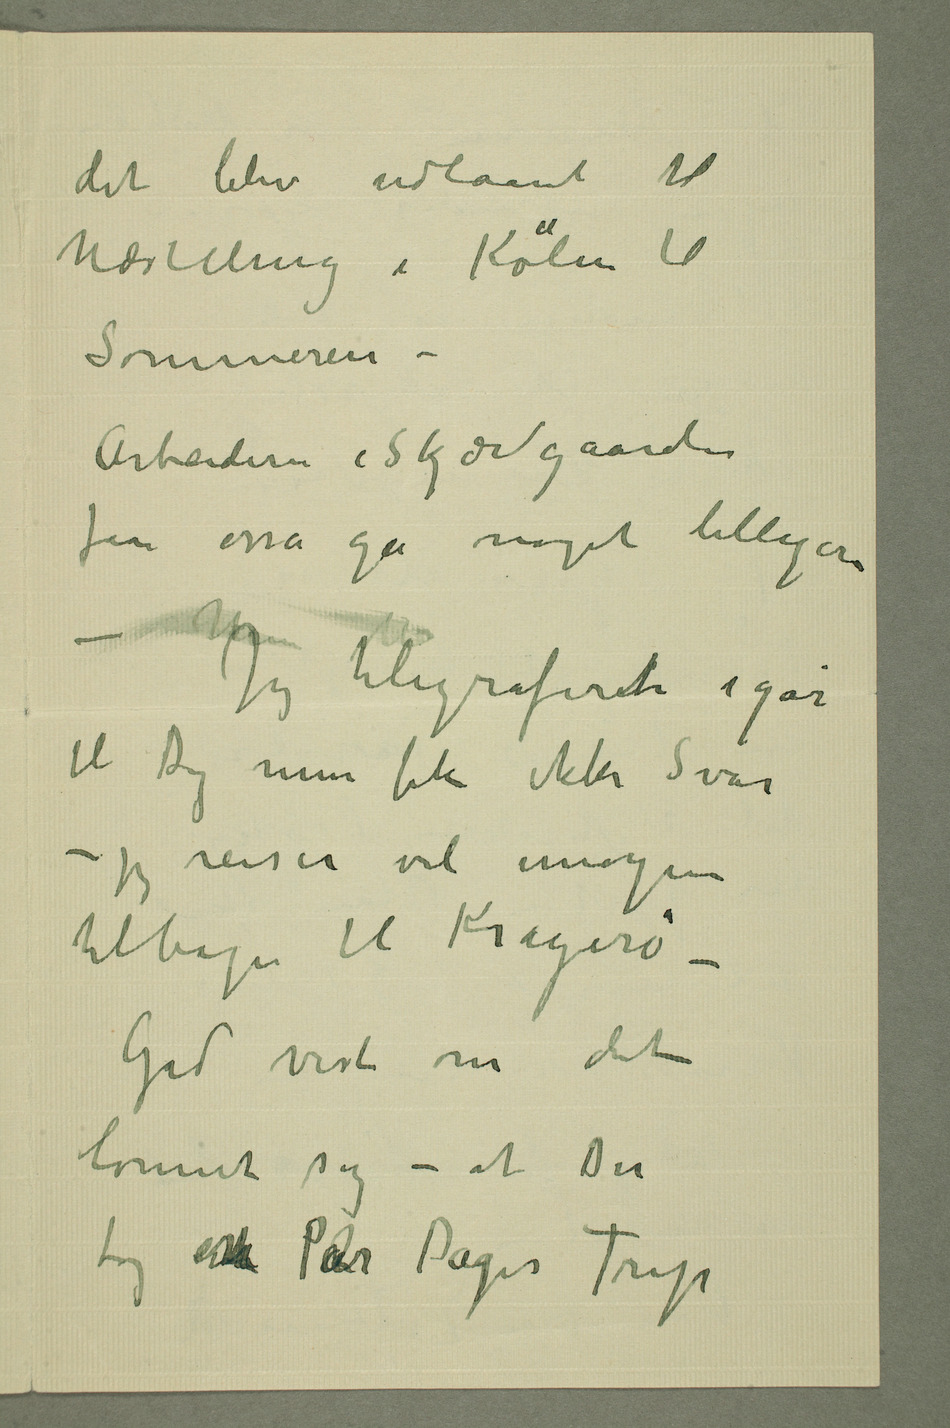 det blev udlaant til
Udstilling i Köln til
Sommeren –
Arbeiderne i Skjærgaarden
får osså gå noget billigere
– Jeg telegraferte igår
til Dig men fik ikke Svar
– jeg reiser vel imorgen
tilbage til Kragerø –
Gud vist om det
lønnet sig – at Du
tog et Par Dages Trip